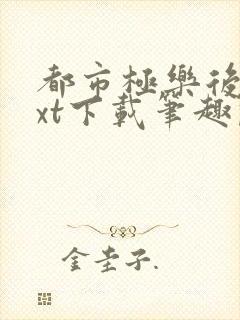 都市極樂後
xt下載筆趣
金圭子.